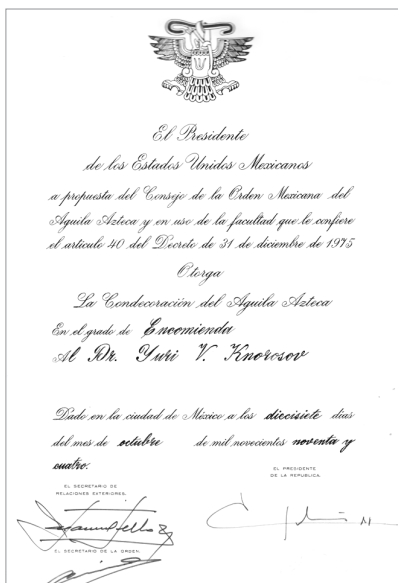 El Presidente
de los Estados Unidos Mexicanos
a propuesta del Consejo de la Orden Mexicana del
Aguila Azteca y en uso de la facultad que le confiere
el articulo 40 del Decreto de 31 de diciembre de 1975
Otorga
La Condecoración del Aguila Azteca
En el grado de Encomienda
Al Dr. Yuri V. Knorosov
Dado en la ciudad de México a los diecisiete días
del mes de octubre de mil novecientos noventa y
cuatro.
EL PRESIDENTE
DE LA REPUBLICA
EL SECRETARIO DE
RELACIONES EXTERIORES,
EL SECRETARIO DE LA ORDEN,